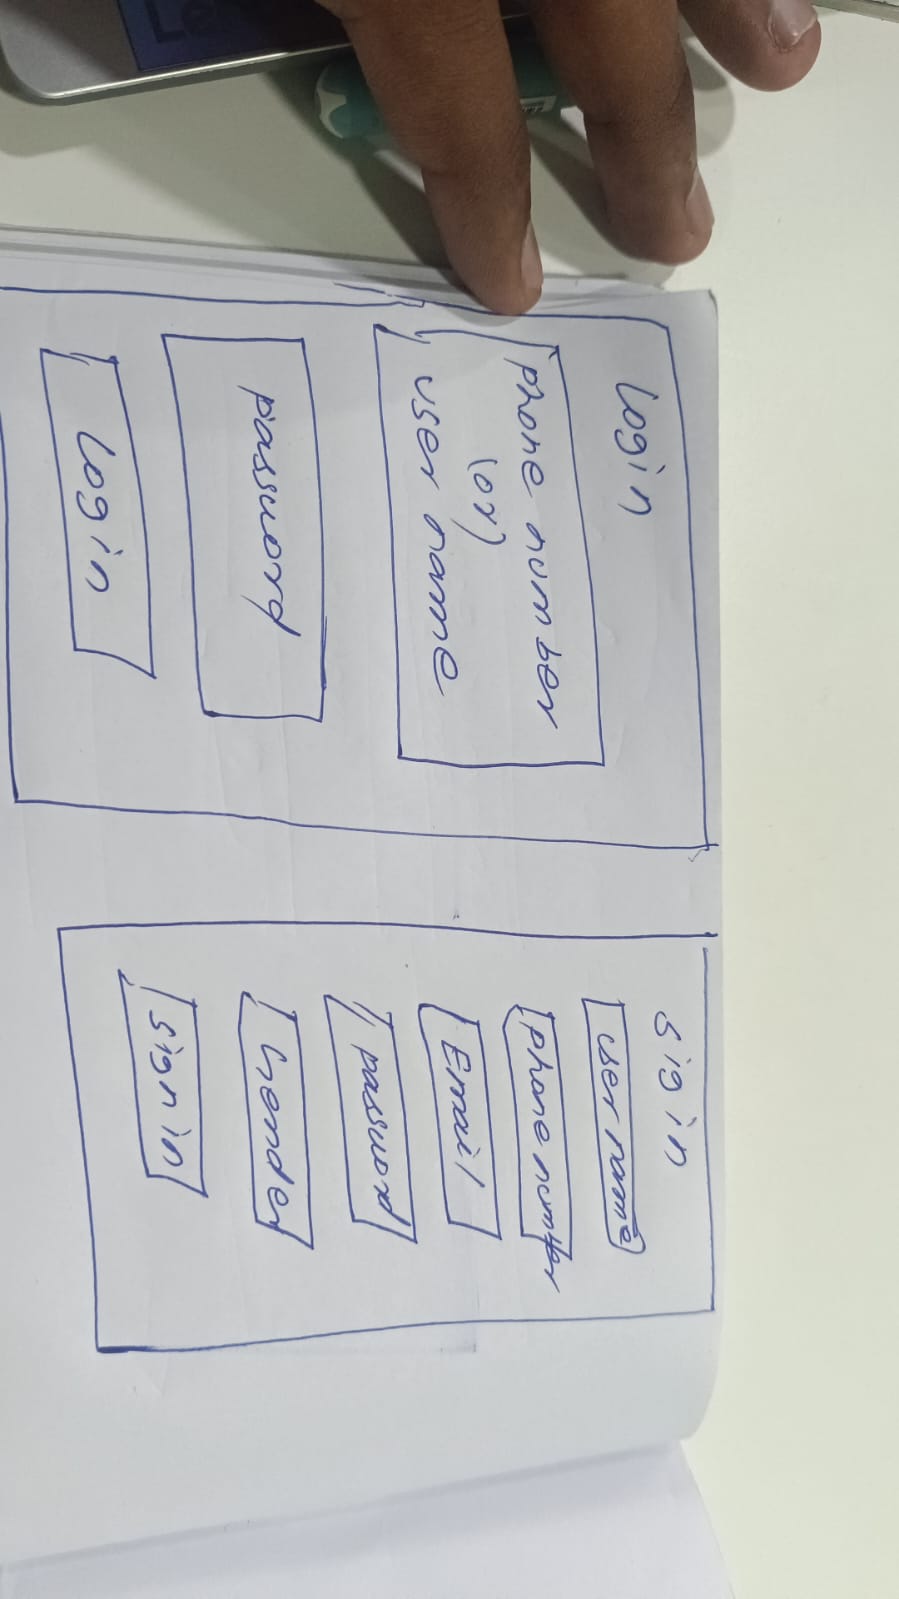 Login
phone number
(or)
user name
password
Login
sig in
user name
phone number
Email
password
Gender
sign in